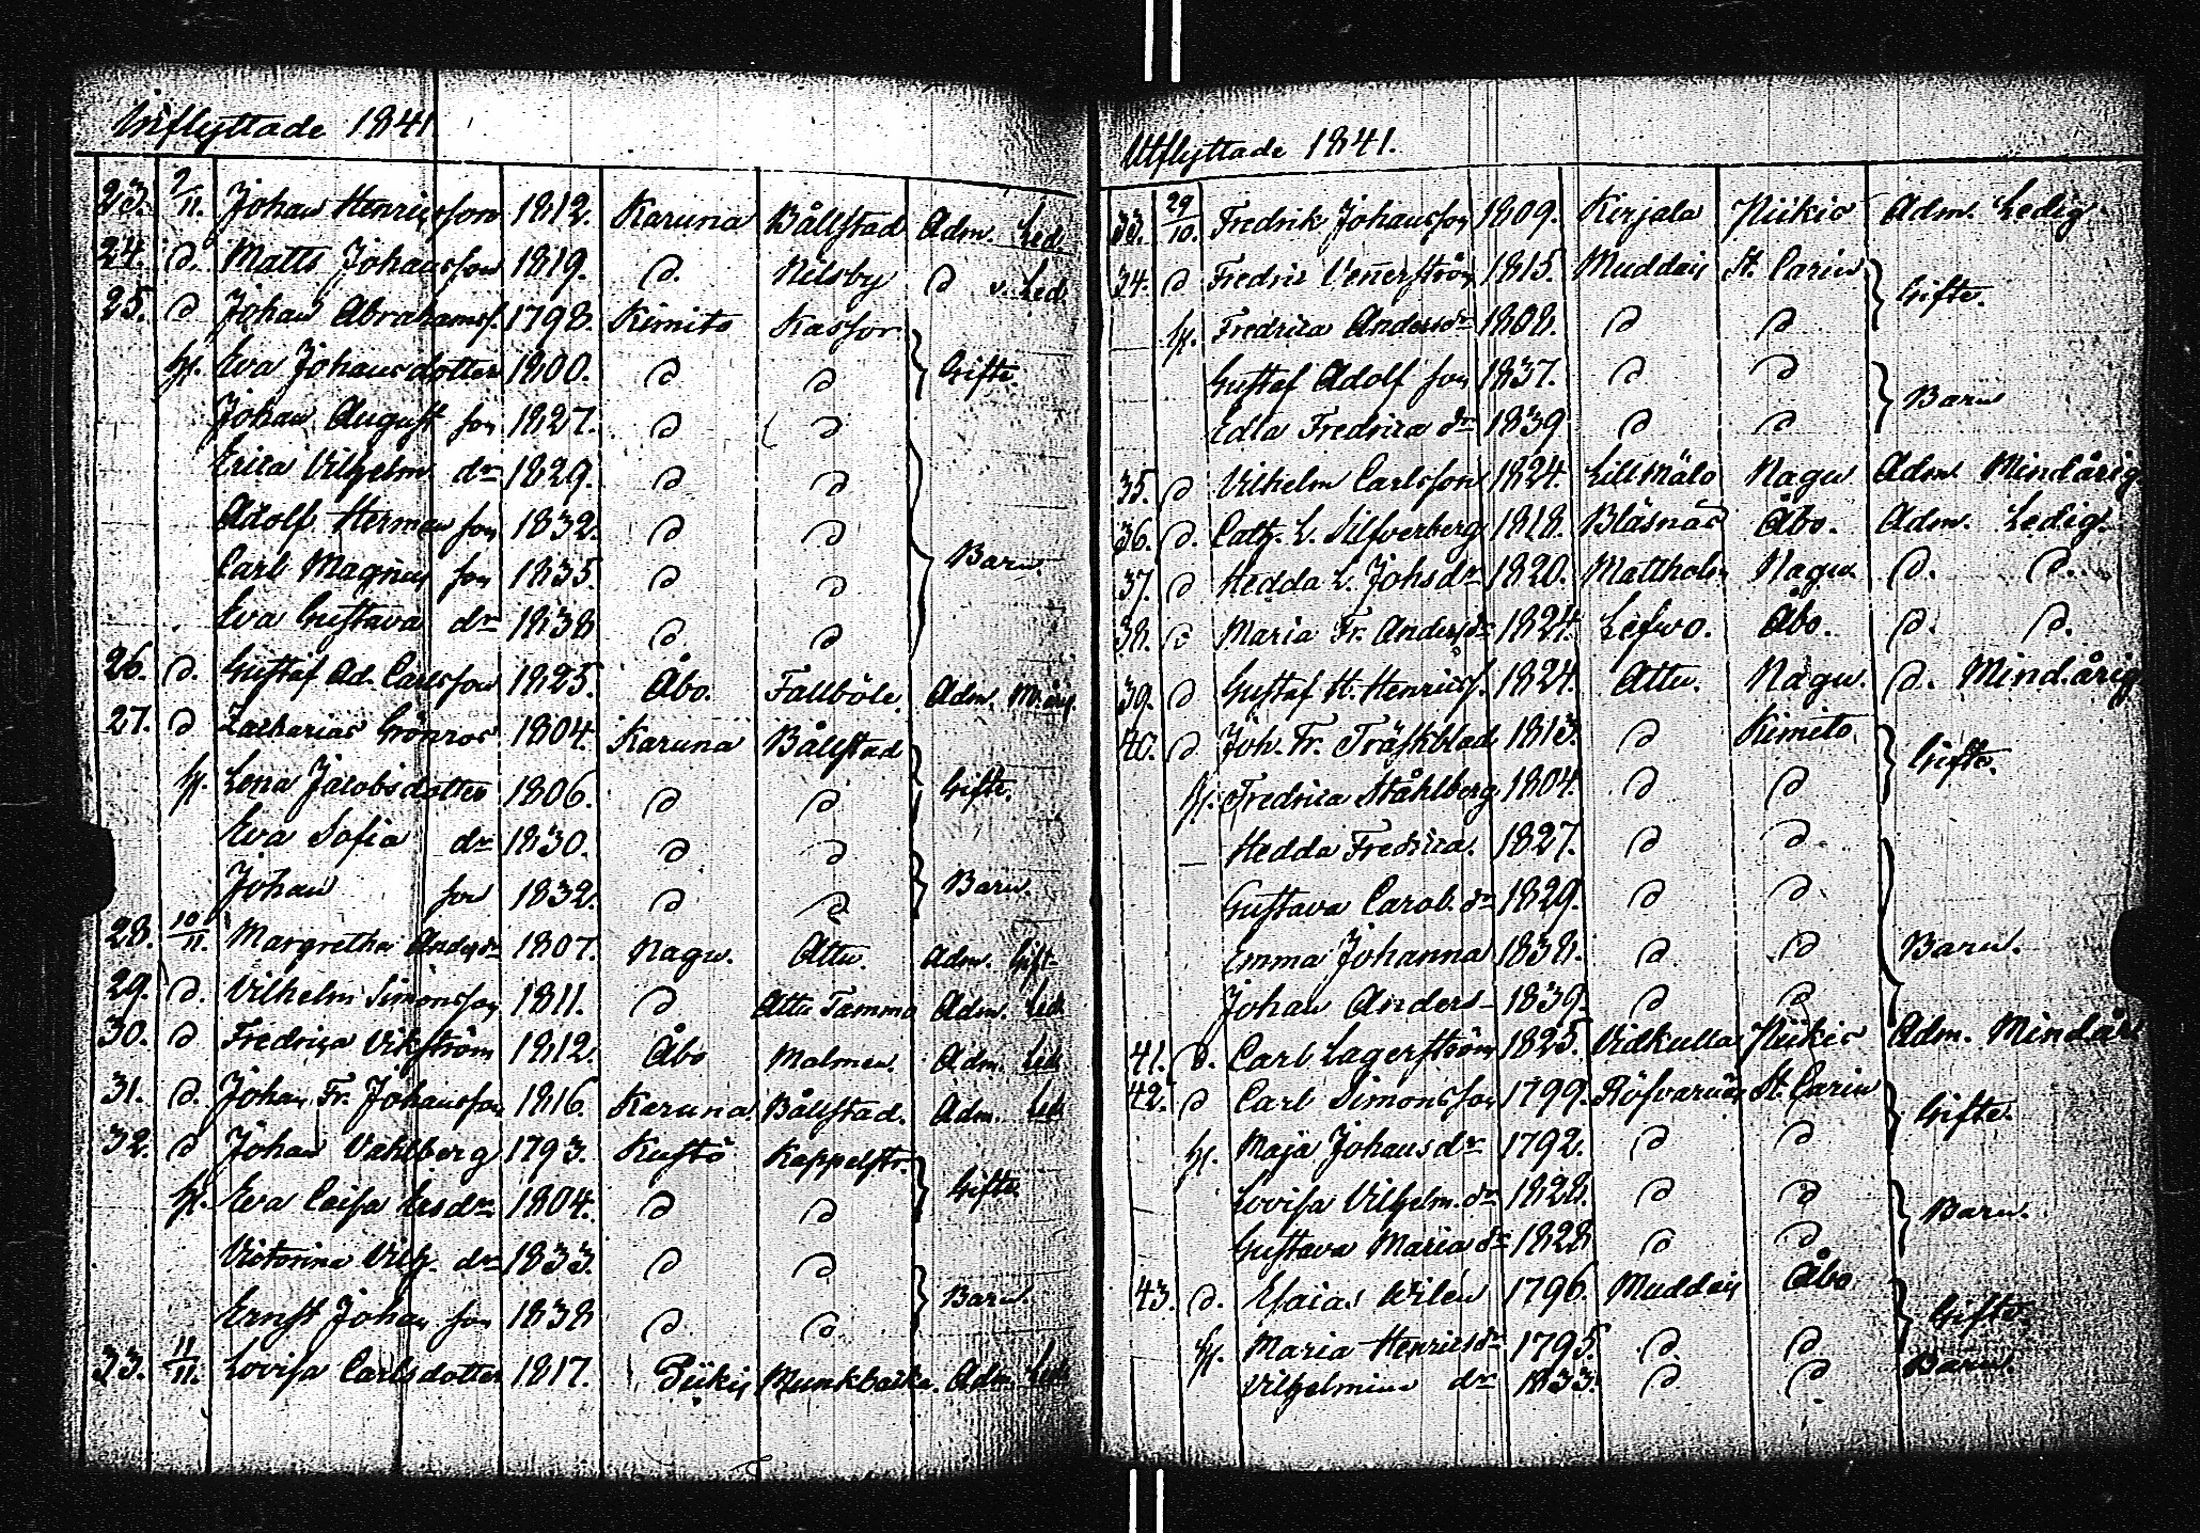 Inflyttade 1841
23. 7/11. Johan Henricsson 1812. Karuna Bållstad Adm. Led.
24. D. Matts Johansson 1819. D. Nilsby D v. Led.
25. D Johan Abrahamss. 1798. Kimito Kasfor. Gifte.
H. Eva Johansdotter 1800. D D
Johan August son 1827. D D
Erica Vilhelm. dr 1829. D D
Adolf Herman son 1832. D D Barn.
Carl Magnus son 1835. D D
Eva Gustava dr 1838 D D
26. D. Gustaf Ad. Carlsson 1825. Åbo. Fallböle. Adm. M. årig.
27. D Zacharias Grönros 1804. Karuna Bållstad Gifte.
H. Lena Jacobsdotter 1806. D D
Eva Sofia dr 1830. D D Barn.
Johan son 1832. D D
28. 10/11. Margretha Andersdr 1807. Nagu. Attu. Adm. Gift
29. D. Vilhelm Simonsson 1811. D Attu Tammo Adm. Led.
30. D Fredrica Vikström 1812. Åbo Malmen. Adm. Led.
31. D. Johan Fr. Johansson 1816. Karuna. Bållstad. Adm. Led.
32. D Johan Vahlberg 1793. Kustö Kappelstr. Gifte.
H. Eva Caisa Ersdr 1804. D D
Victorina Vilh. dr 1833. D D Barn.
Ernst Johan son 1838 D D
33. 11/11. Lovisa Carlsdotter 1817. Piikis Munkbacka. Adm. Led.
Utflyttade 1841.
33. 29/10. Fredrik Johansson 1809. Kirjala Piikis Adm. Ledig.
34. D Fredric Vennerström 1815. Muddais St. Carin Gifte.
H. Fredrica Andersdr 1808. D D
Gustaf Adolf son 1837. D D Barn
Edla Fredrica dr 1839 D D
35. D Vilhelm Carlsson 1824. Lillmälo Nagu Adm. Mindårig
36. D. Cath. L. Silfverberg 1818. Bläsnäs Åbo. Adm. Ledig.
37. D Hedda L. Johsdr 1820. Mattholm Nagu. D. D.
38. D Maria Fr. Andersdr 1824. Lefwo. Åbo. D. D.
39. D Gustaf H. Henricss. 1824. Attu. Nagu. D. Mindårig
40. D Joh. Fr. Träskblad 1813. D Kimito Gifte.
H. Fredrica Ståhlberg 1804. D D
Hedda Fredrica. 1827. D D.
Gustava Carol. dr 1829. D D
Emma Johanna 1838. D. D Barn.
Johan Anders 1839. D D
41. D. Carl Lagerström 1825. Vidkulla Piikis Adm. Mindår
42. D Carl Simonsson 1799. Röfvarnäs St. Carin Gifte.
H. Maja Johansdr 1792. D D
Lovisa Vilhelm. dr 1828. D D Barn.
Gustava Maria dr 1828 D D
43. D. Esaias Wilén 1796. Muddais Åbo Gifte.
H. Maria Henricsdr 1795. D. D.
Vilhelmina dr 1833. D D Barn.